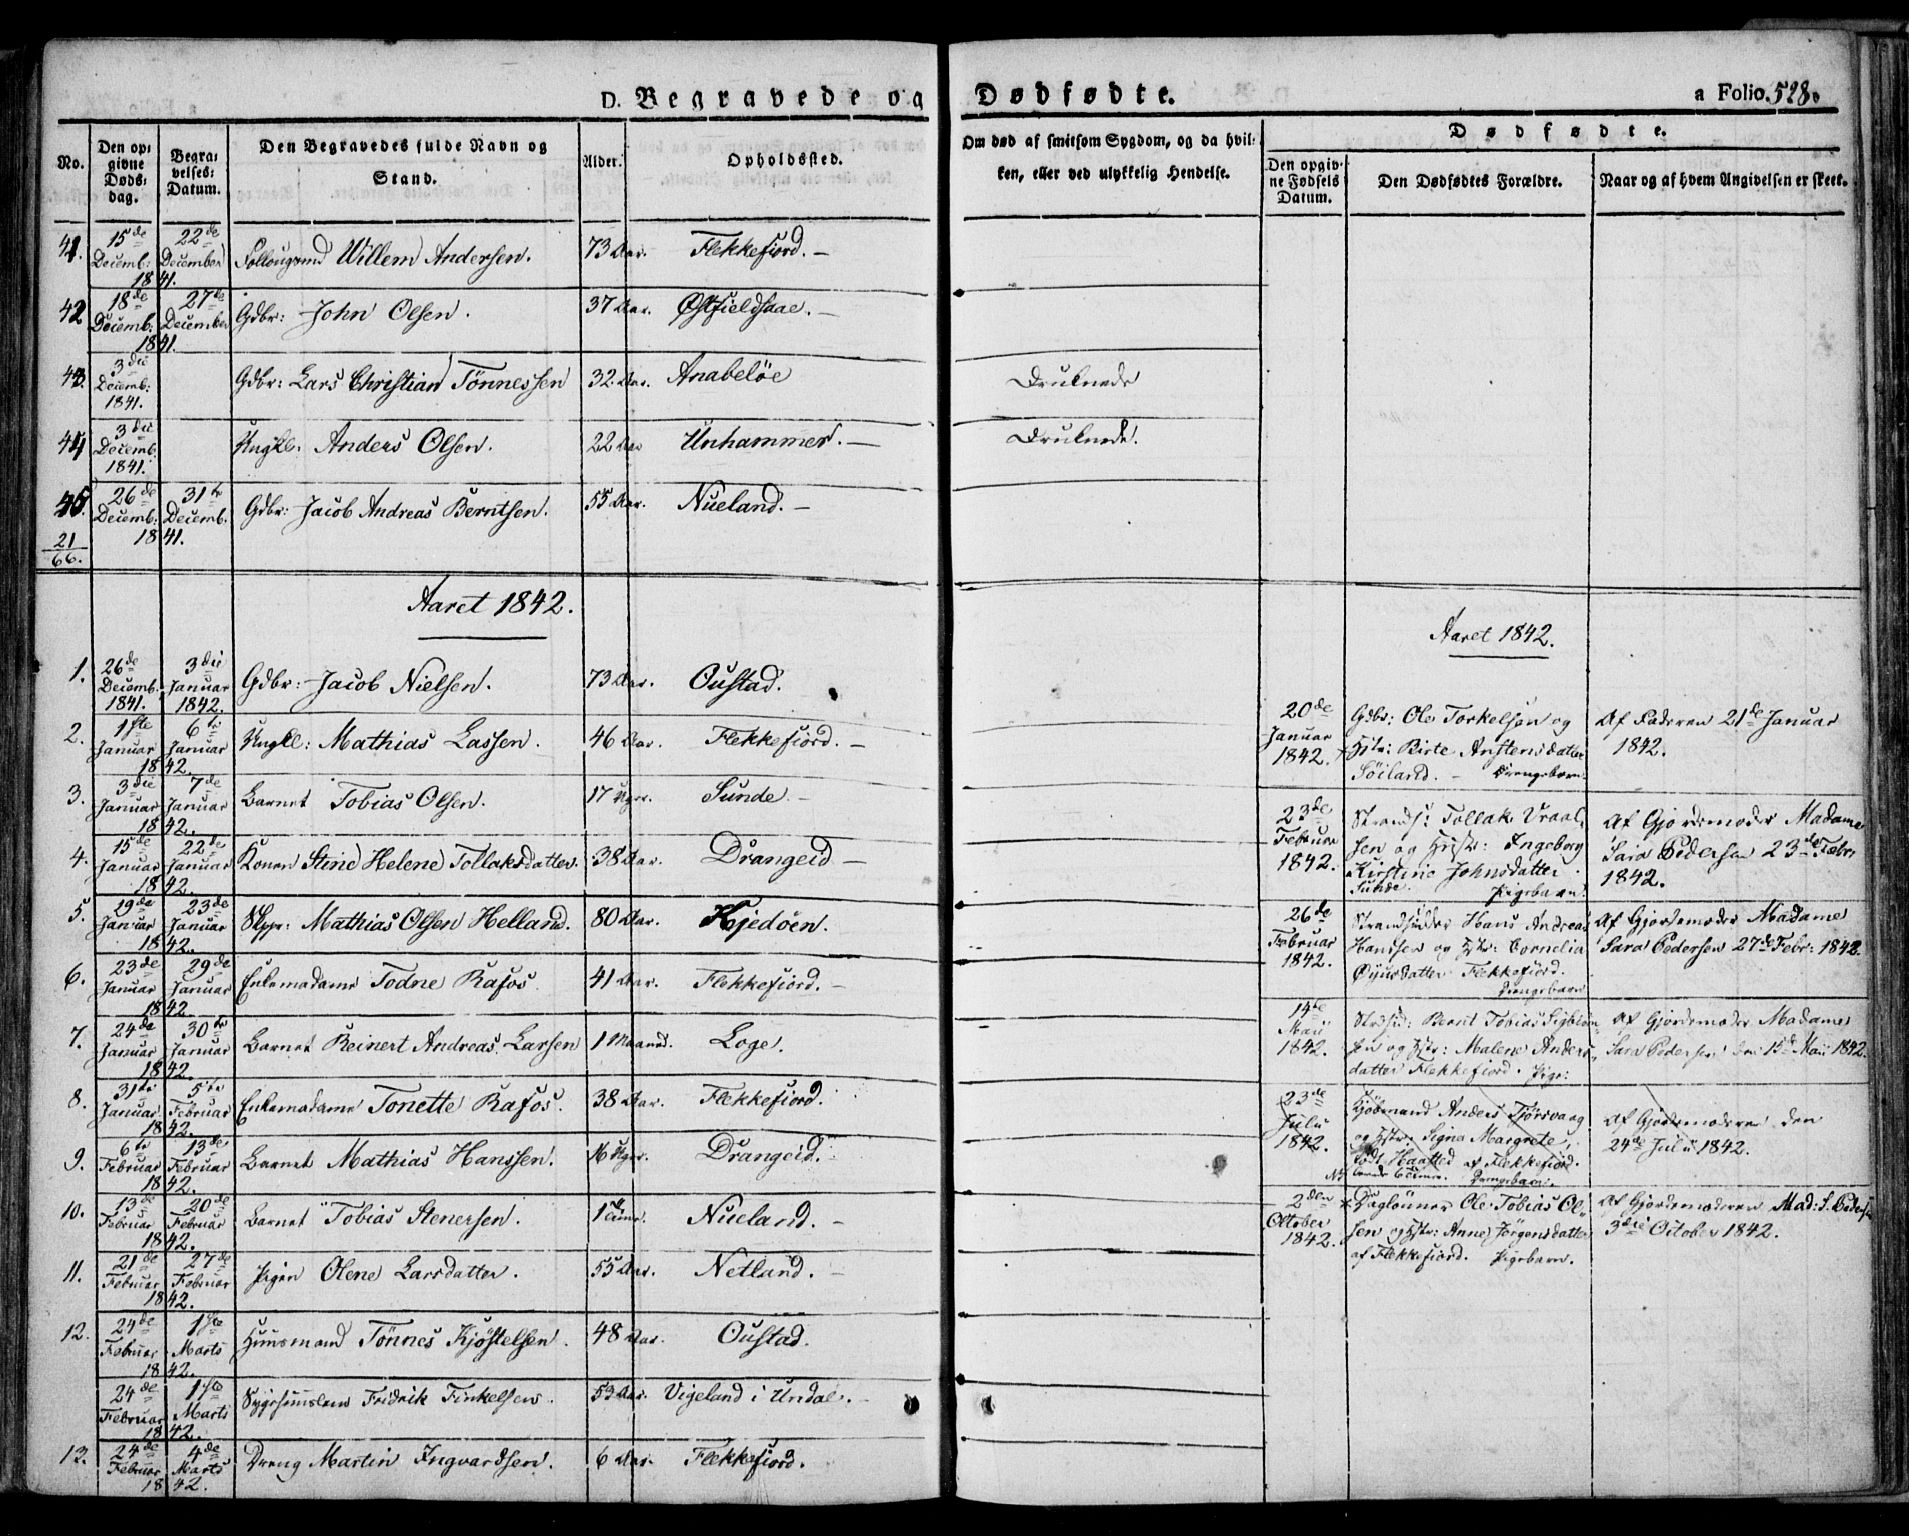 D. Begravede og Dødfødte. a Folio 528.
No.
Den opgivne Døds-dag.
Begravelses-Datum.
Den Begravedes fulde Navn og Stand.
Alder.
Opholdssted.
Om død af smitsom Sygdom, og da hvilken, eller ved ulykkelig Hendelse.
Dødfødte.
Den opgivne Fødsels Datum.
Den Dødfødtes Forældre.
Naar og af hvem Angivelsen er skeet.
41. 15de Decemb: 22de December 1841. Willem Andersen. 73 Aar. Flekkefiord. –
42 18de Decemb: 27de December 1841. Gdbr: John Olsen. 37 Aar. Østfieldsaae. –
43. 3die Decemb. 1841. Gdbr: Lars Christian Tönnessen 32. Aar. Anabelöe Druknede
44 3die Decemb. 1841. Ungkl. Anders Olsen. 22 Aar Unhammer. – Druknede.
45. 26de Decemb: 31te Decemb. 1841. Gdbr: Jacob Andreas Berntsen. 55 Aar. Nueland. –
21
66.
Aaret 1842.
1. 26de Decemb. 1841. 3die Januar 1842. Gdbr: Jacob Nielsen. 73 Aar. Oustad.
2. 1ste Januar 6te Januar 1842. Ungkl: Mathias Lassen. 46 Aar. Flekkefiord. –
3. 3die Januar 7de Januar 1842. Barnet Tobias Olsen. 17 Uger. Sunde. –
4. 15de Januar 22de Januar 1842. Konen Stine Helene Tollaksdatter. 38 Aar. Drangeid –
5. 19de Januar 23de Januar 1842. Skpr: Mathias Olsen Helland. 80 Aar. Hjedöen.
6. 23de Januar 29de Januar 1842. Enkemadame Todne Rafos. 41 Aar. Flekkefiord. –
7. 24de Januar 30te Januar 1842. Barnet Reinert Andreas Larsen 1 Maaned. Loge.
8. 31te Januar 5te Februar 1842. Enkemadame Tonette Rafos. 38 Aar. Flekkefiord.
9. 6te Februar 13de Februar 1842. Barnet Mathias Hanssen. 16 Uger. Drangeid.
10. 13de Februar 20de Februar 1842. Barnet Tobias Stenersen. 1 Time. Nueland. –
11. 21de Februar 27de Februar 1842. Pigen Olene Larsdatter. 55 Aar. Netland. –
12. 24de Februar 1ste Marts 1842. Huusmand Tönnes Kjöstelsen. 48 Aar. Oustad.
24de Februar 1ste Marts 1842. Fridrik Finkelsen. 53 Aar. Vigeland i Undal. –
13. 24de Februar 4de Marts 1842. Dreng Martin Ingvardsen. 6 Aar. Flekkefiord.
Aaret 1842.
20de Januar 1842.
Gdbr: Ole Torkelsen og
Hstr: Birte Anstensdatter
Söiland. – Drengebarn.
Af Faderen 21de Januar
1842.
23de Februar 1842.
Strands: Tollak Vraal-
sen og Hustr: Ingeborg
Kirstine Johnsdatter
Sunde. Pigebarn.
Af Gjordemoder Madame
Sara Pedersen 23de Febr
1842.
26de Februar 1842.
Strandsidder Hans Andreas
Hansen og Hstr: Cornelia
Flekkefiord.
Drengebarn
Af Gjordemoder Madame
Sara Pedersen 27de Febr: 1842.
14de Maii 1842.
Strdsid: Bernt Tobias
sen og Hstr: Malene Anders-
datter Flekkefiord. Pige:
Af Gjordemoder Madame
Sara Pedersen den 15de Maii 1842.
23de Julii 1842.
Kjöbmand Anders Tjörsvaag
og Hstr: Signe Margrete,
födt Haasted af Flekkefiord.
Drengebarn.
Af Gjordemoderen den
24de Julii 1842.
2den October 1842.
Daglönner Ole Tobias Ol-
sen og Hstr: Anne Jörgensdatter
af Flekkefiord. Pigebarn.
Af Gjordemoderen Mad: S. Pedersen
3die October 1842.